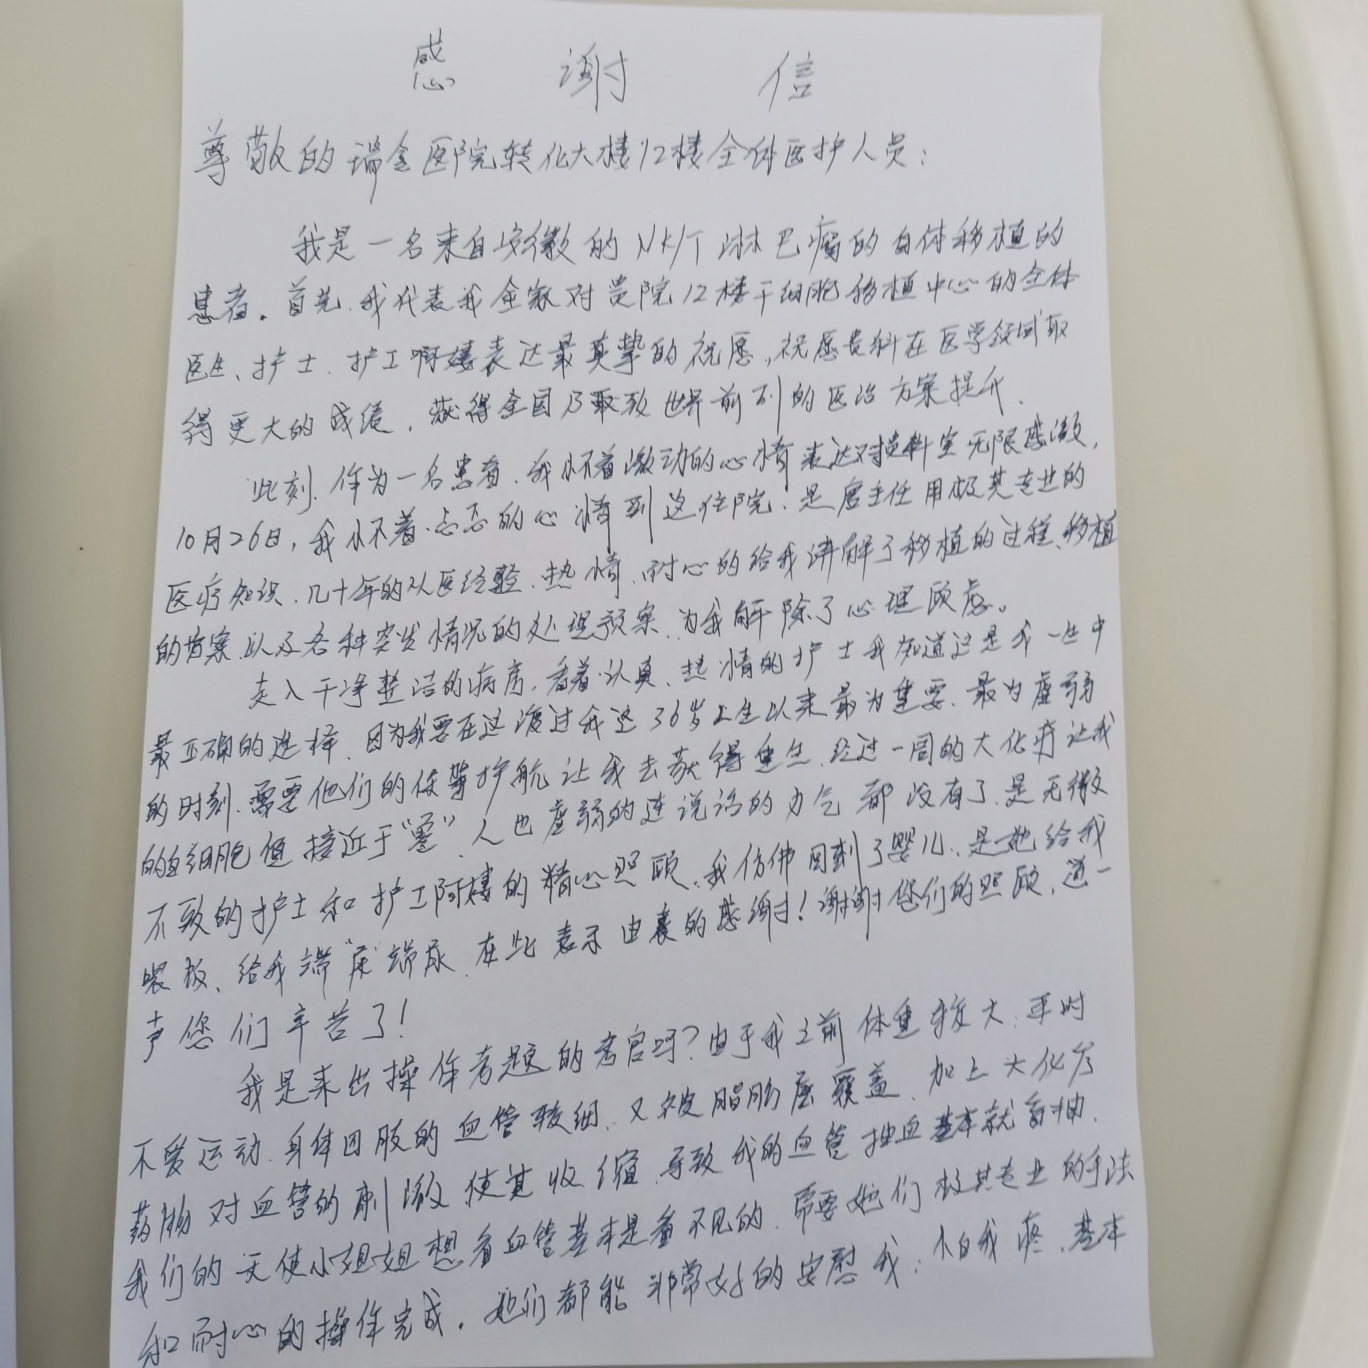 感谢信
尊敬的瑞金医院转化大楼12楼全体医护人员：
我是一名来自安徽的NK/T淋巴瘤的自体移植的
患者。首先，我代表我全家对贵院12楼干细胞移植中心的全体
医生、护士、护工阿姨表达最真挚的祝愿，祝愿贵科在医学领域取
得更大的成绩，获得全国乃至世界前列的医治方案提升。
此刻，作为一名患者，我怀着激动的心情表达对贵科室无限感激，
10月26日，我怀着忐忑的心情到这住院，是唐主任用极其专业的
医疗知识、几十年的从医经验、热情、耐心的给我讲解了移植的过程、移植
的方案、以及各种突发情况的处理预案，为我解除了心理顾虑。
走入干净整洁的病房，看着认真、热情的护士我知道这是我一生中
最正确的选择，因为我要在这渡过我这36岁人生以来最为重要、最为虚弱
的时刻，需要他们的保驾护航让我去获得重生，经过一周的大化疗让我
的血细胞值接近于“零”，人也虚弱的连说话的力气都没有了，是无微
不致的护士和护工阿姨的精心照顾，我仿佛回到了婴儿，是她给我
喂饭、给我端屎端尿，在此表示由衷的感谢！谢谢您们的照顾，道一
声您们辛苦了！
我是来出操作考题的考官吗？由于我之前体重较大，平时
不爱运动，身体四肢的血管较细，又被脂肪层覆盖，加上大化疗
药物对血管的刺激使其收缩，导致我的血管抽血基本就
我们的天使小姐姐想看血管基本是看不见的，需要她们极其专业的手法
和耐心的操作完成，她们都能非常好的安慰我，怕我疼，基本